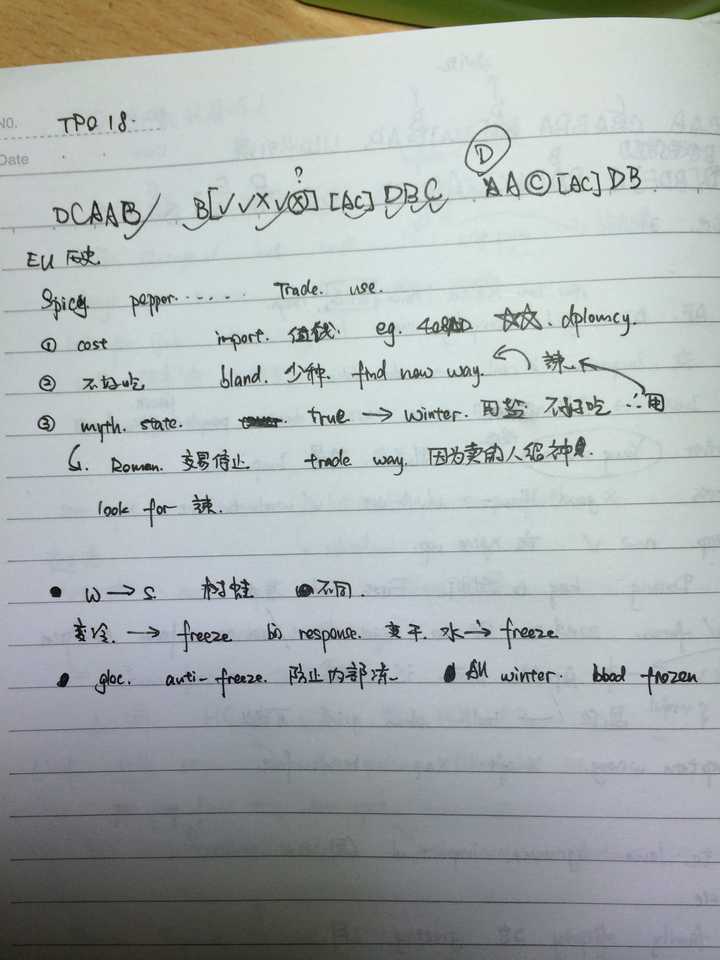 No.
TPO 18.
Date
?
D
DCAAB B[✓✓X✓X] [AC] DBC AAC[AC]DB
EU 历史
Spicy pepper...... Trade. use.
① cost import. 值钱. eg. ☆☆. dplomcy.
② 不好吃 bland. 少种. find new way. 辣
③ myth. state. true → winter. 用盐 不好吃 ∴用
Roman. 交易停止 trade way. 因为卖的人很神
look for 辣.
• W → S. 树蛙 不同.
变冷. → freeze. response. 变干. 水 → freeze
• gloc. anti-freeze. 防止内部冻 • All winter. blood frozen